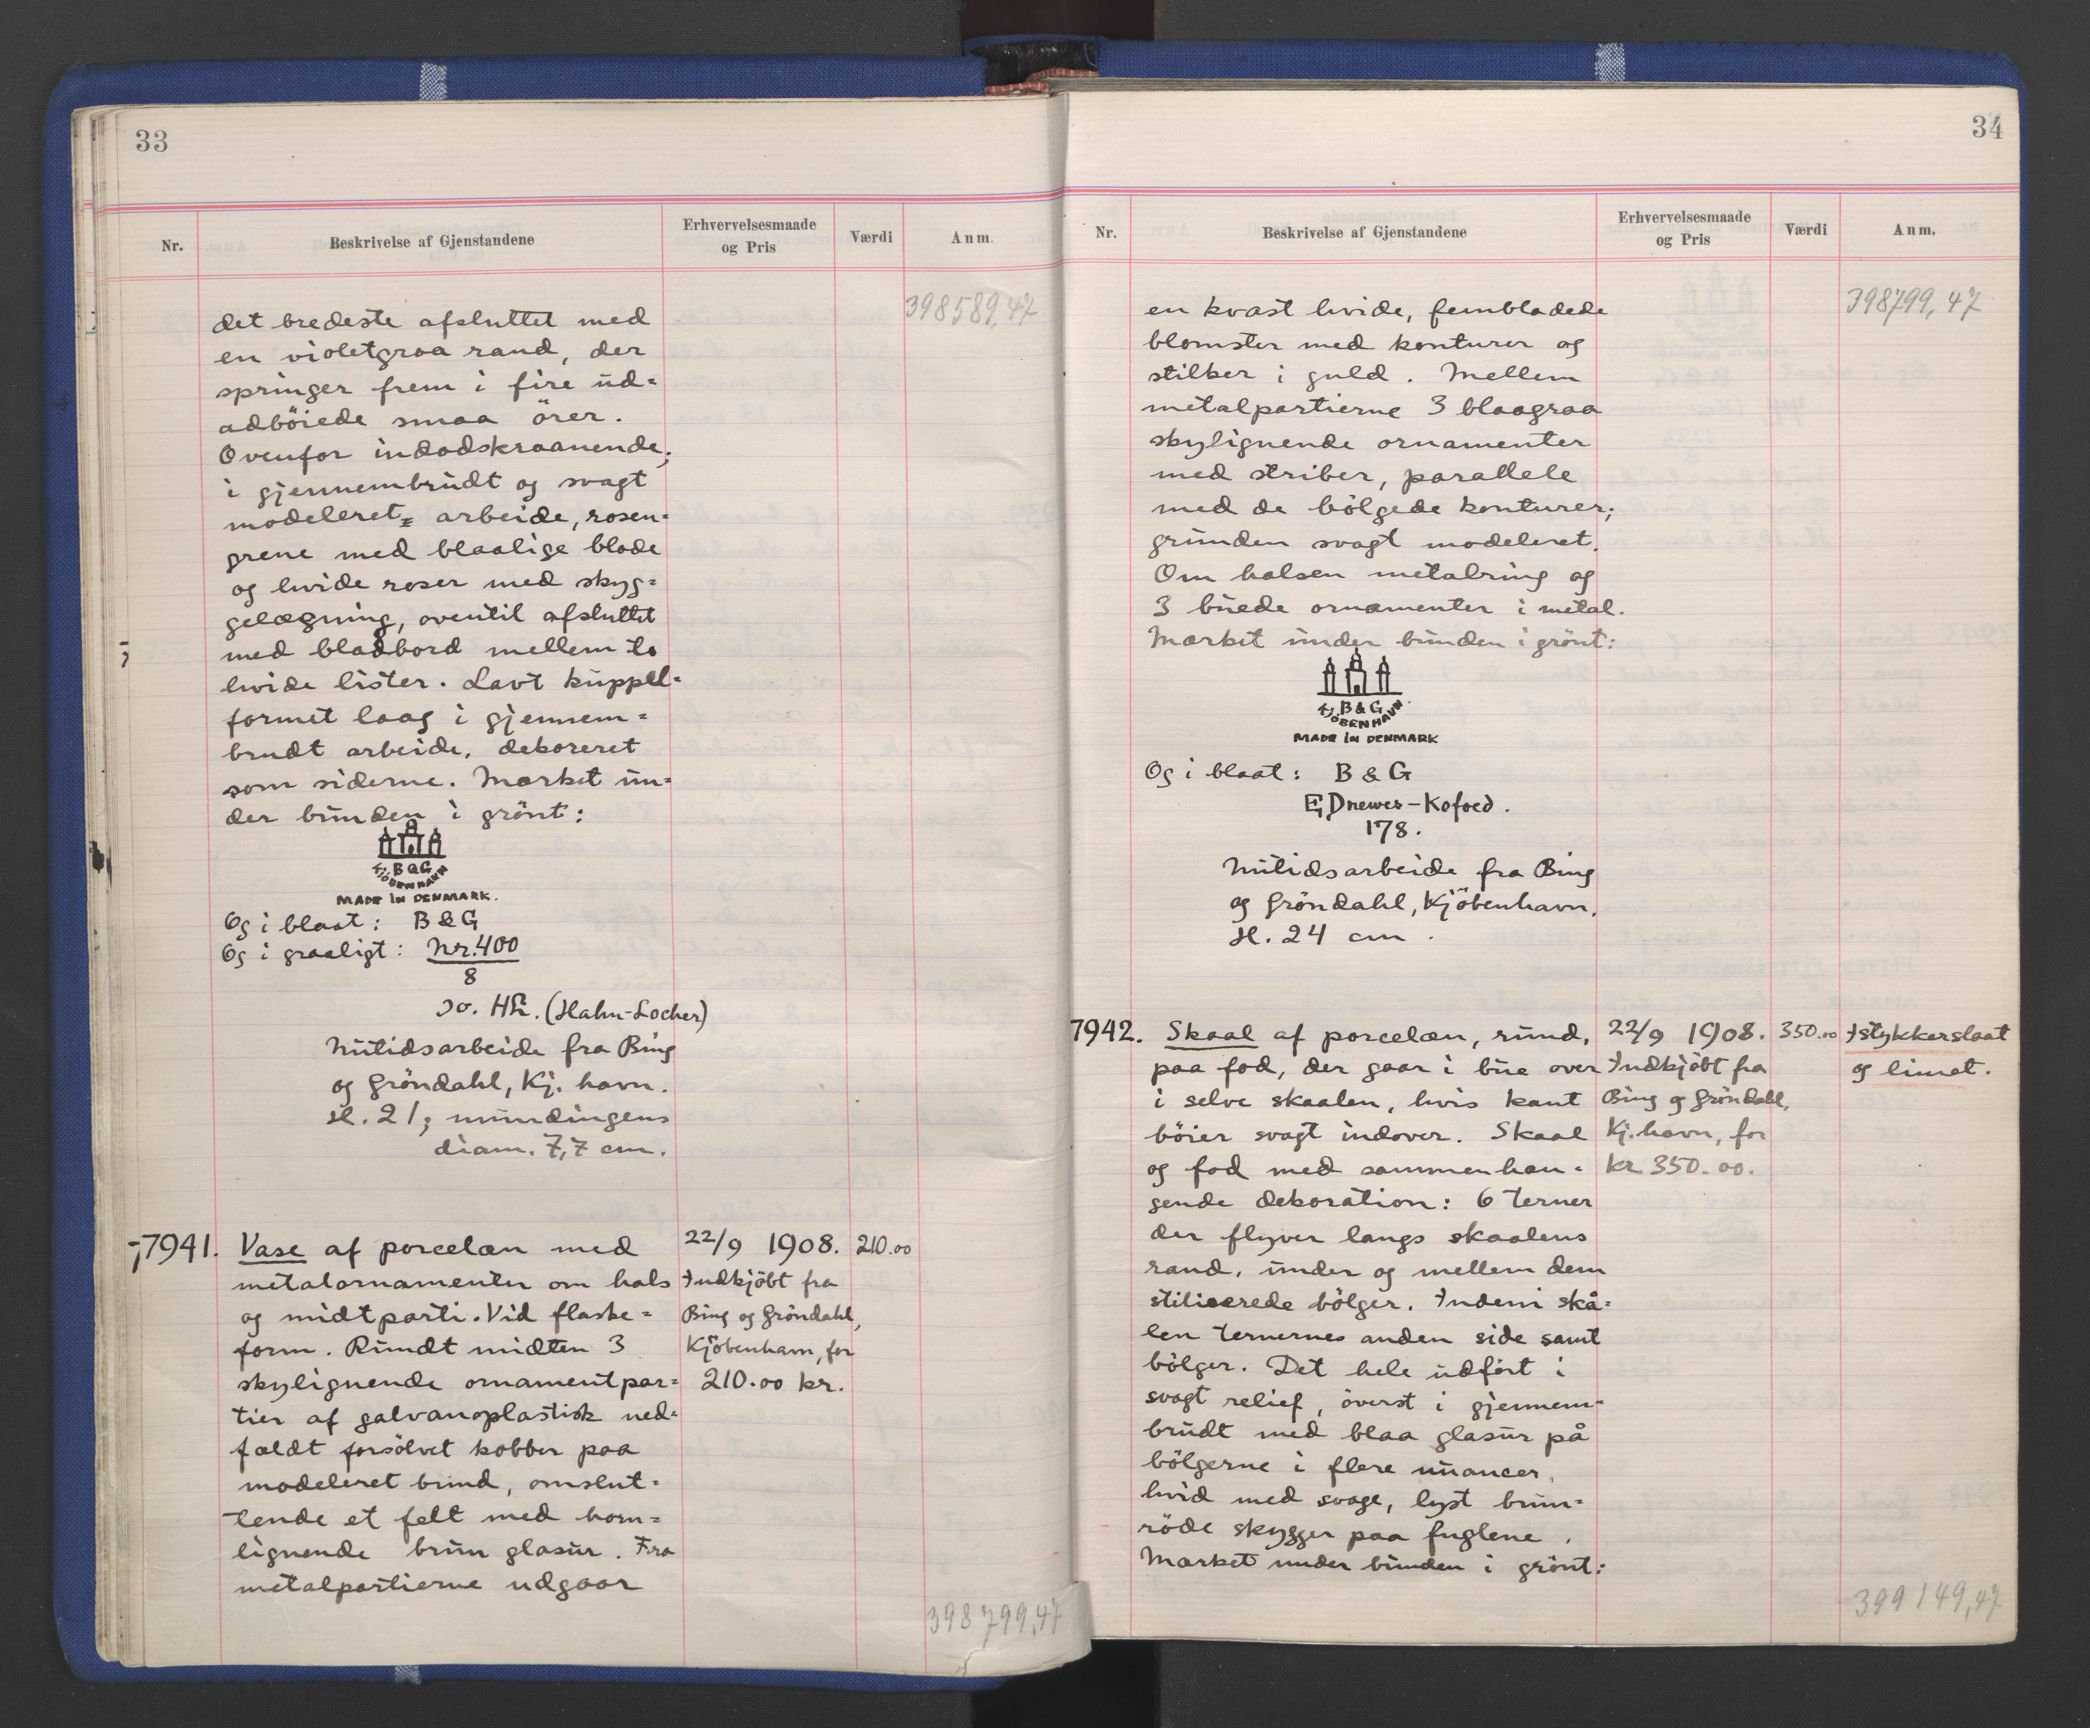 33
Nr.
Beskrivelse af Gjenstandene
Erhvervelsesmaade
og Pris
Værdi
Anm.
398589,47
det bredeste afsluttet med
en violetgraa rand, der
springer frem i fire ud=
adböiede smaa örer.
Ovenfor indadskraanende,
i gjennembrudt og svagt
modeleret arbeide, rosen=
grene med blaalige blade
og hvide roser med skyg=
gelægning, oventil afsluttet
med bladbord mellem to
hvide lister. Lavt kuppel=
formet laag i gjennem=
brudt arbeide, dekoreret
som siderne. Mærket un=
der bunden i grönt:
B&G
KJÖBENHAVN
MADE IN DENMARK.
Og i blaat: B&G
Og i graaligt: Nr. 400
8
Jo. HL. (Hahn-Locher)
Nutidsarbeide fra Bing
og Gröndahl, Kj. havn.
H. 21; mundingens
diam. 7,7 cm.
7941. Vase af porcelæn med
metalornamenter om hals
og midtparti. Vid flaske=
form. Rundt midten 3
skylignende ornamentpar=
tier af galvanoplastisk ned=
fældt forsölvet kobber paa
modeleret bund, omslut=
tende et felt med horn=
lignende brun glasur. Fra
metalpartierne udgaar
22/9 1908.
Indkjöbt fra
Bing og Gröndahl,
Kjöbenhavn, for
210.00 kr.
210.00
398799,47
34
Nr.
Beskrivelse af Gjenstandene
Erhvervelsesmaade
og Pris
Værdi
Anm.
398799,47
en kvast hvide, fembladede
blomster med konturer og
stilker i guld. Mellem
metalpartierne 3 blaagraa
skylignende ornamenter
med striber, parallele
med de bölgede konturer;
grunden svagt modeleret.
Om halsen metalring og
3 buede ornamenter i metal.
Mærket under bunden i grönt:
B&G
KJÖBENHAVN
MADE IN DENMARK
Og i blaat: B&G
E, Drewes-Kofoed.
178.
Nutidsarbeide fra Bing
og Gröndahl, Kjöbenhavn.
H. 24 cm.
7942. Skaal af porcelæn, rund,
paa fod, der gaar i bue over
i selve skaalen, hvis kant
böier svagt indover. Skaal
og fod med sammenhæn=
gende dekoration: 6 terner
der flyver langs skaalens
rand, under og mellem dem
stiliserede bölger. Indeni skå=
len ternernes anden side samt
bölger. Det hele udfört i
svagt relief, överst i gjennem=
brudt med blaa glasur på
bölgerne i flere nuancer,
hvid med svage, lyst brun=
röde skygger paa fuglene.
Mærket under bunden i grönt:
22/9 1908.
Indkjöbt fra
Bing og Gröndahl,
Kj.havn, for
kr. 350.00.
350.00
Istykkerslaat
og limet.
399149,47